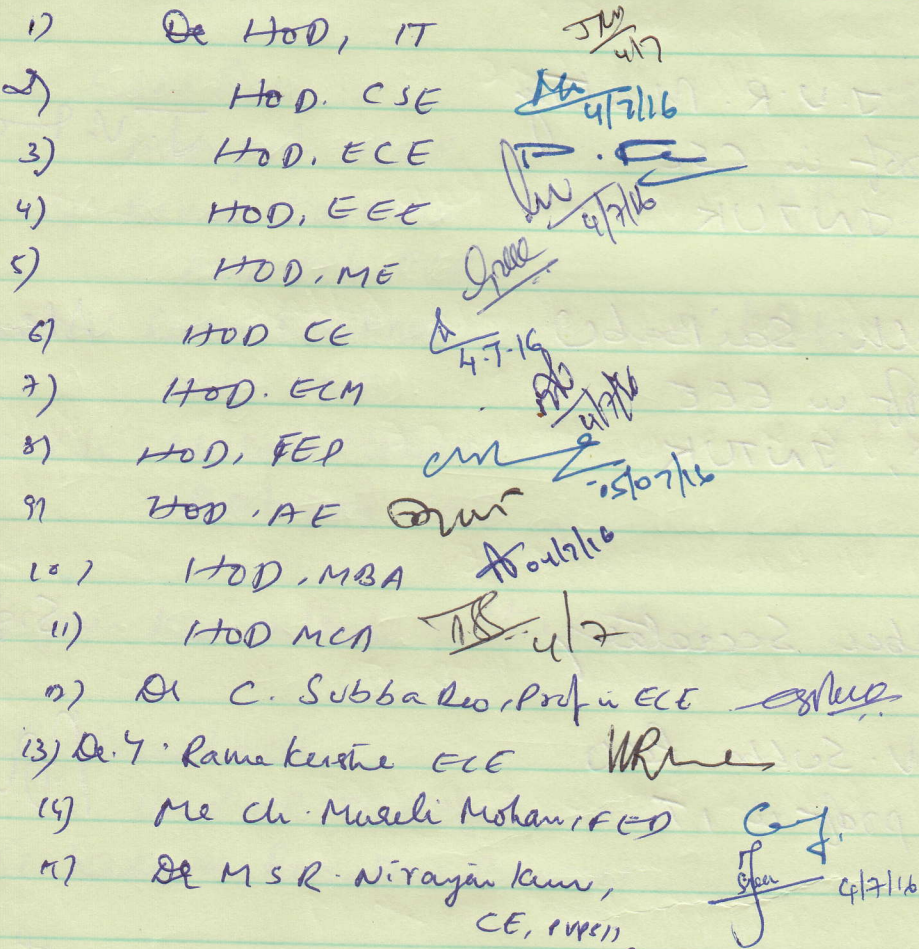 1) De HOD, IT 4/7
2) HOD. CSE 4/7/16
3) HOD. ECE
4) HOD, EEE 4/7/16
5) HOD, ME
6) HOD CE 4.7.16
7) HOD. ECM 4/7/16
8) HOD, FED 05/07/16
9) HOD. AE
10) HOD, MBA 04/7/16
11) HOD MCA 4/7
12) Dr C. Subba Rao, Prof in ECE
13) Dr. Y. Rama Krishna ECE
14) Mr Ch. Murali Mohan, FED
15) Dr M S R. Niranjan Kumar, 4/7/16
CE,